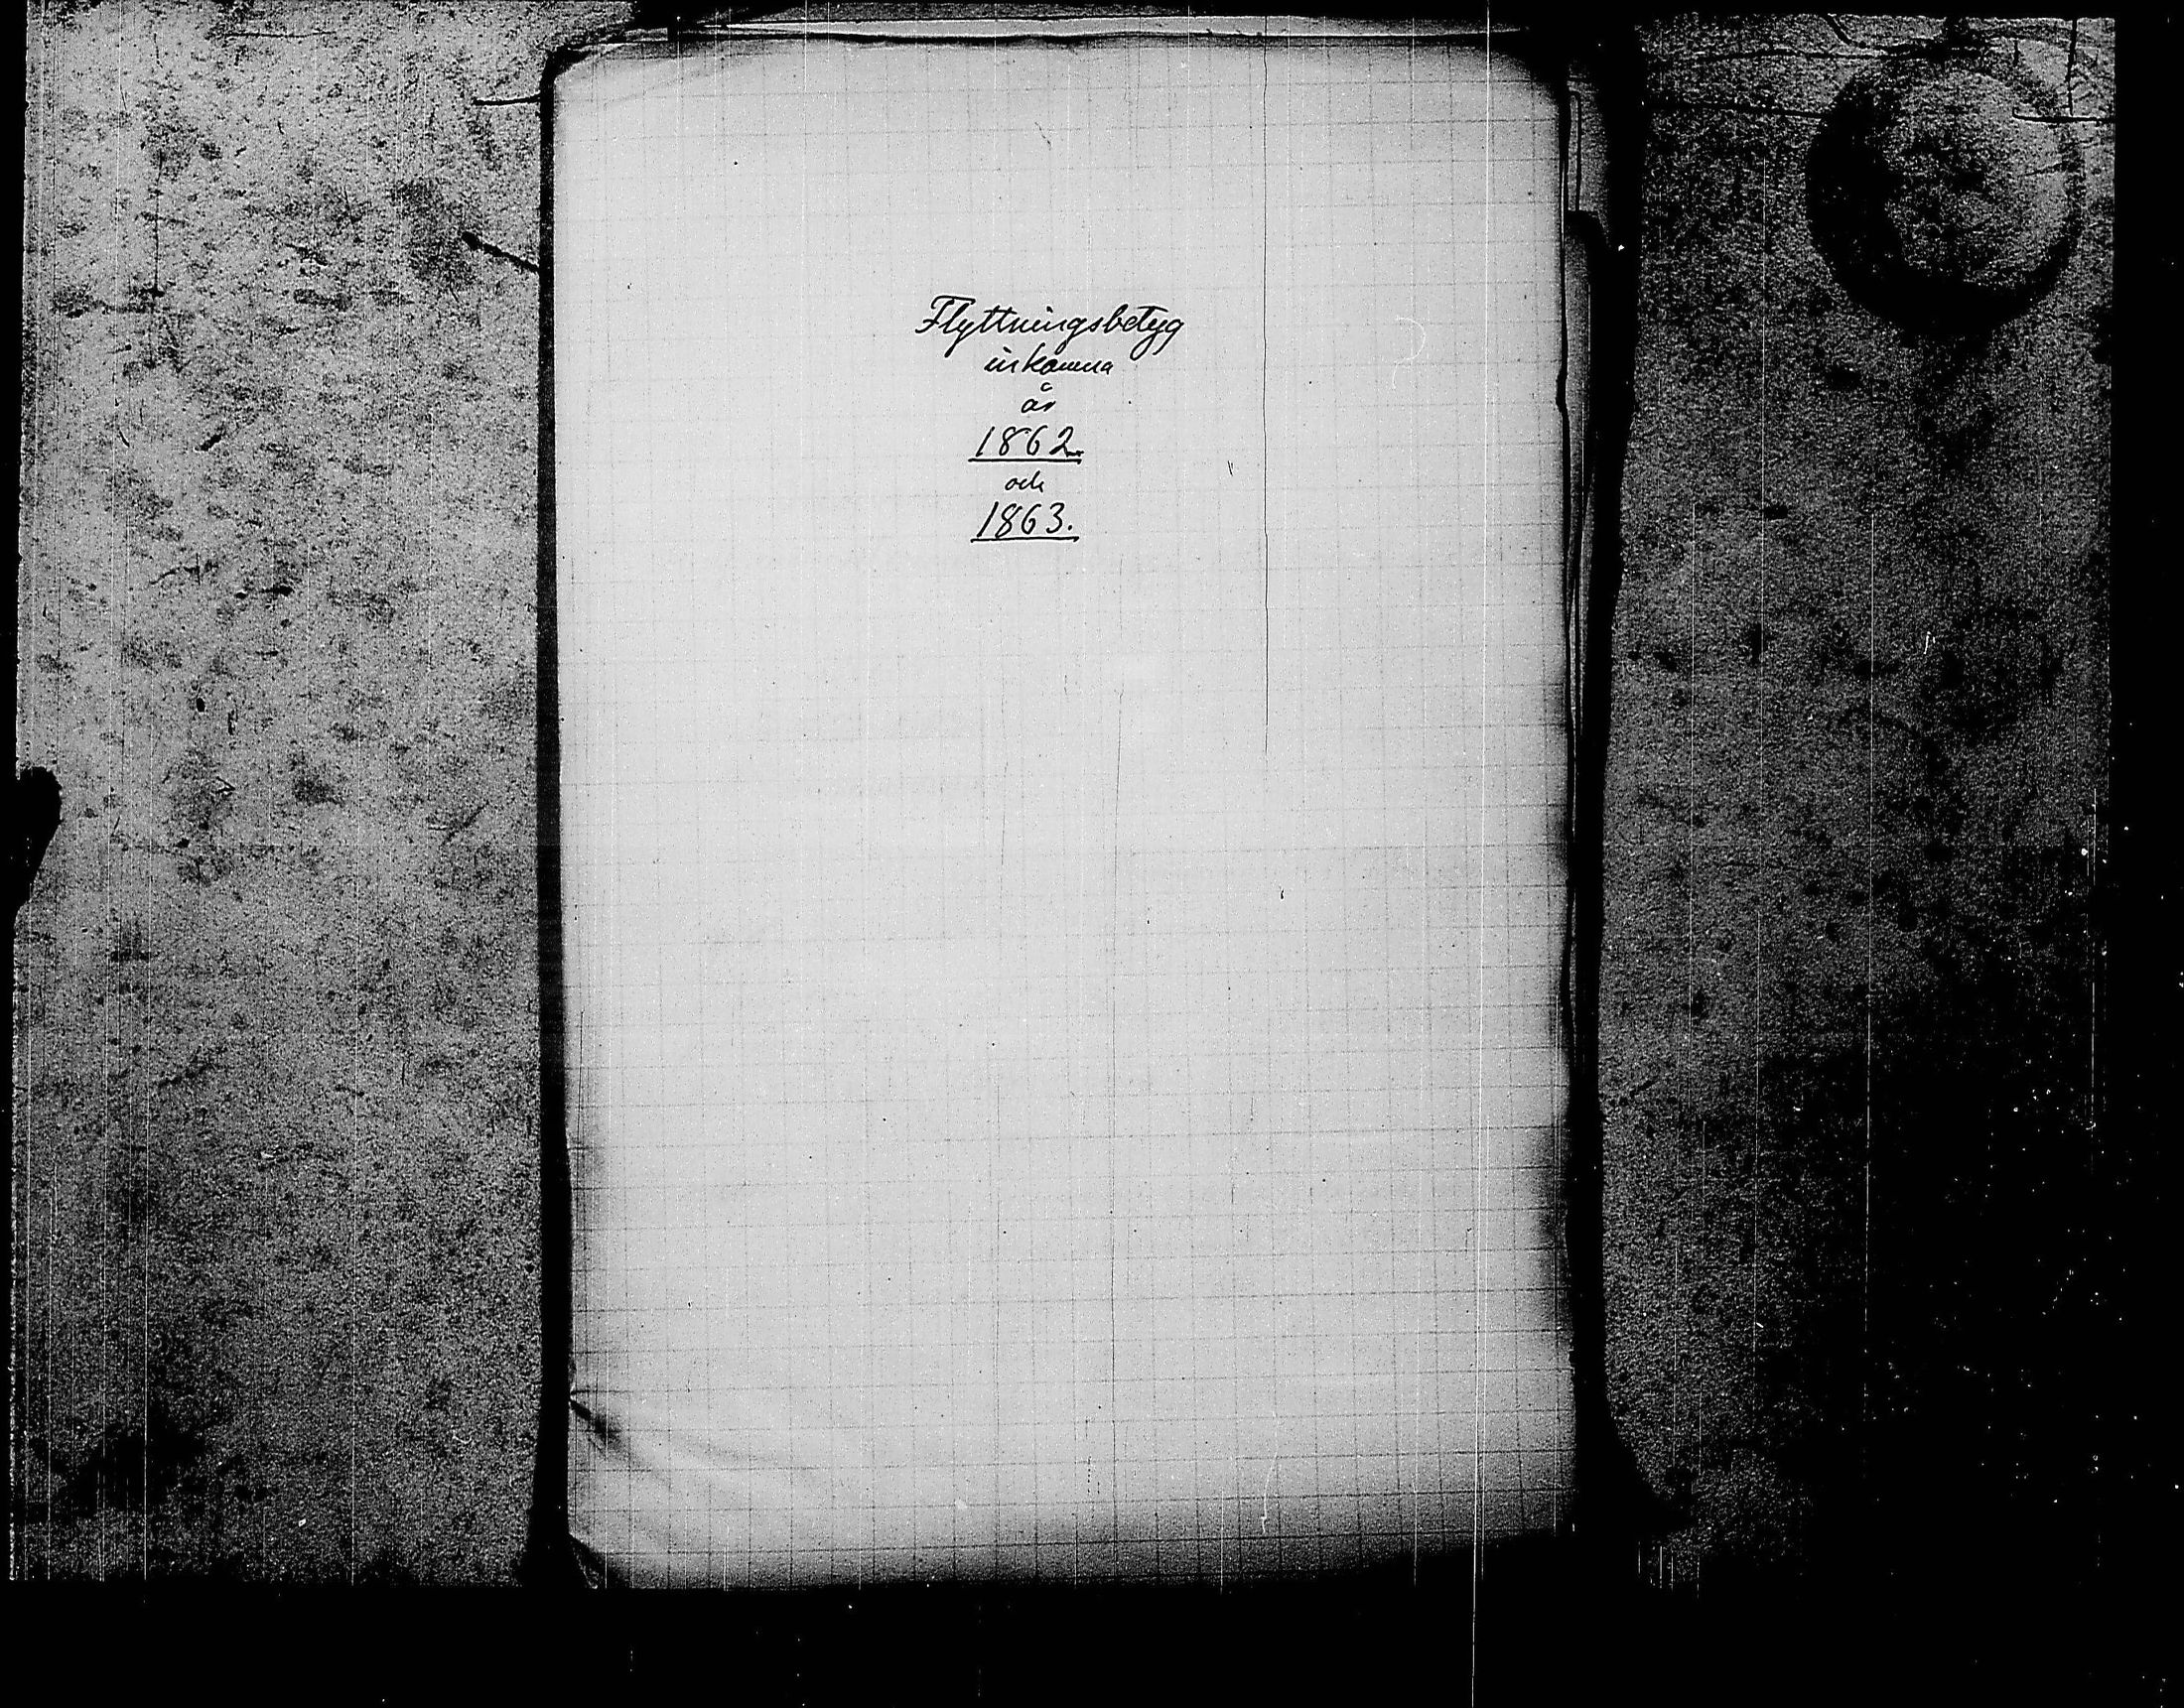 Flyttningsbetyg
inkomna
år
1862.
och
1863.